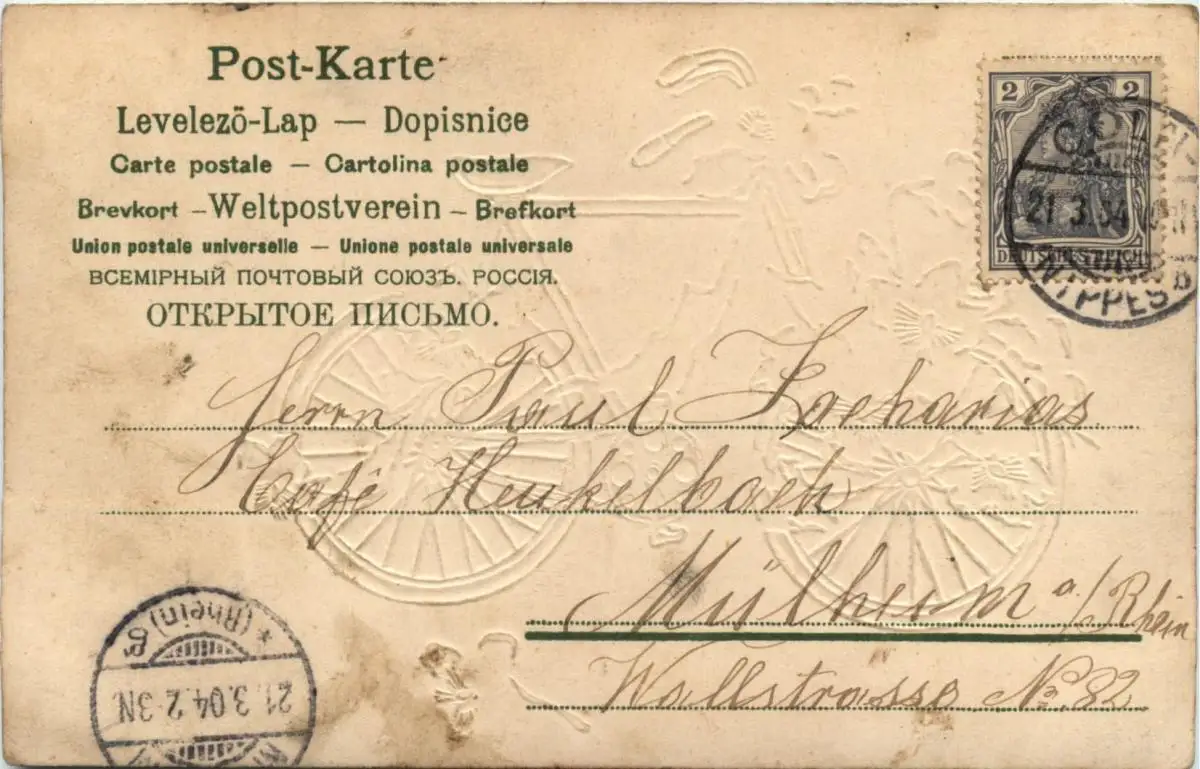 Post-Karte
Levelezö-Lap — Dopisnice
Carte postale — Cartolina postale
Brevkort – Weltpostverein – Brefkort
Union postale universelle — Unione postale universale
ВСЕМІРНЫЙ ПОЧТОВЫЙ СОЮЗЪ. РОССІЯ.
ОТКРЫТОЕ ПИСЬМО.
2 2
DEUTSCHES REICH
21.3.04
NIPPES
Herrn Paul Zacharias
Café Heukelbach
Mülheim a/Rhein
Wallstrasse No. 82
(Rhein)
21.3.04.2-3N